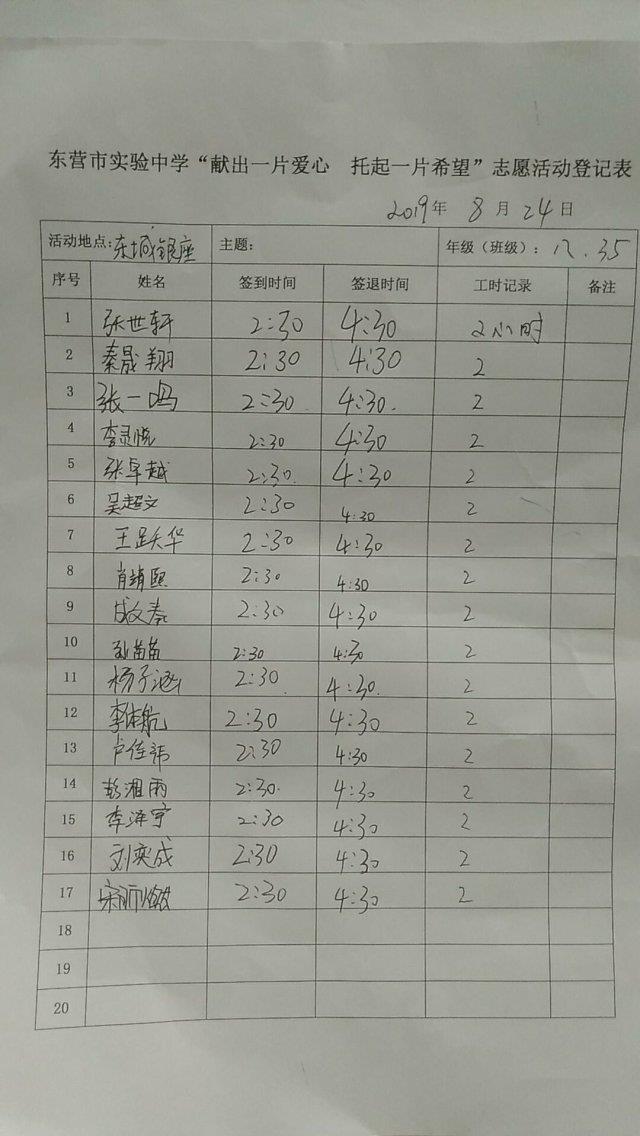 东营市实验中学“献出一片爱心 托起一片希望”志愿活动登记表
2019年 8月 24日
活动地点:东城银座 主题: 年级（班级）: 八.35
序号 姓名 签到时间 签退时间 工时记录 备注
1 张世轩 2:30 4:30 2小时
2 秦晟翔 2:30 4:30 2
3 张一鸣 2:30 4:30 2
4 李灵悦 2:30 4:30 2
5 张卓越 2:30 4:30 2
6 吴超文 2:30 4:30 2
7 王跃华 2:30 4:30 2
8 肖靖熙 2:30 4:30 2
9 2:30 4:30 2
10 孙苗苗 2:30 4:30 2
11 杨子涵 2:30 4:30 2
12 2:30 4:30 2
13 卢佳祎 2:30 4:30 2
14 彭湘雨 2:30 4:30 2
15 李泽宇 2:30 4:30 2
16 刘奕成 2:30 4:30 2
17 2:30 4:30 2
18
19
20